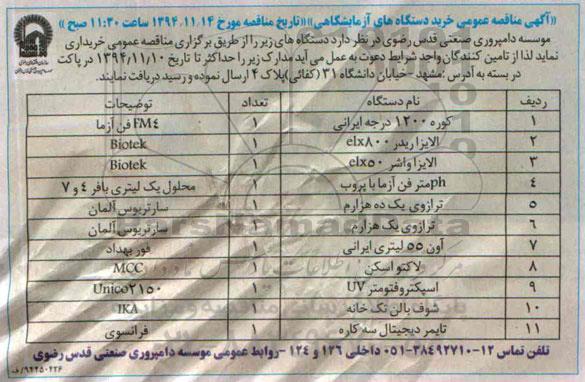 «آگهی مناقصه عمومی خرید دستگاه های آزمایشگاهی»«تاریخ مناقصه مورخ ۱۳۹۴،۱۱،۱۴ ساعت ۱۱:۳۰ صبح»
موسسه دامپروری صنعتی قدس رضوی در نظر دارد دستگاه های زیر را از طریق برگزاری مناقصه عمومی خریداری
نماید لذا از تامین کنندگان واجد شرایط دعوت به عمل می آید مدارک زیر را حداکثر تا تاریخ ۱۳۹۴/۱۱/۱۰ در پاکت
در بسته به آدرس : مشهد - خیابان دانشگاه ۳۱ (کفائی) پلاک ۴ ارسال نموده و رسید دریافت نمایند.
ردیف نام دستگاه تعداد توضیحات
۱ کوره ۱۲۰۰ درجه ایرانی ۱ FM۴ فن آزما
۲ الایزا ریدر elx۸۰۰ ۱ Biotek
۳ الایزا واشر elx۵۰ ۱ Biotek
۴ phمتر فن آزما با پروب ۱ محلول یک لیتری بافر ۴ و ۷
۵ ترازوی یک ده هزارم ۱ سارتریوس آلمان
۶ ترازوی یک هزارم ۱ سارتریوس آلمان
۷ آون ۵۵ لیتری ایرانی ۱ فور بهداد
۸ لاکتو اسکن ۱ MCC
۹ اسپکتروفتومتر UV ۱ Unico۲۱۵۰
۱۰ شوف بالن تک خانه ۱ IKA
۱۱ تایمر دیجیتال سه کاره ۱ فرانسوی
تلفن تماس ۱۲-۳۸۴۹۲۷۱۰-۰۵۱ داخلی ۱۲۶ و ۱۲۴ - روابط عمومی موسسه دامپروری صنعتی قدس رضوی
۹۴۲۵۰۴۲۶/ف